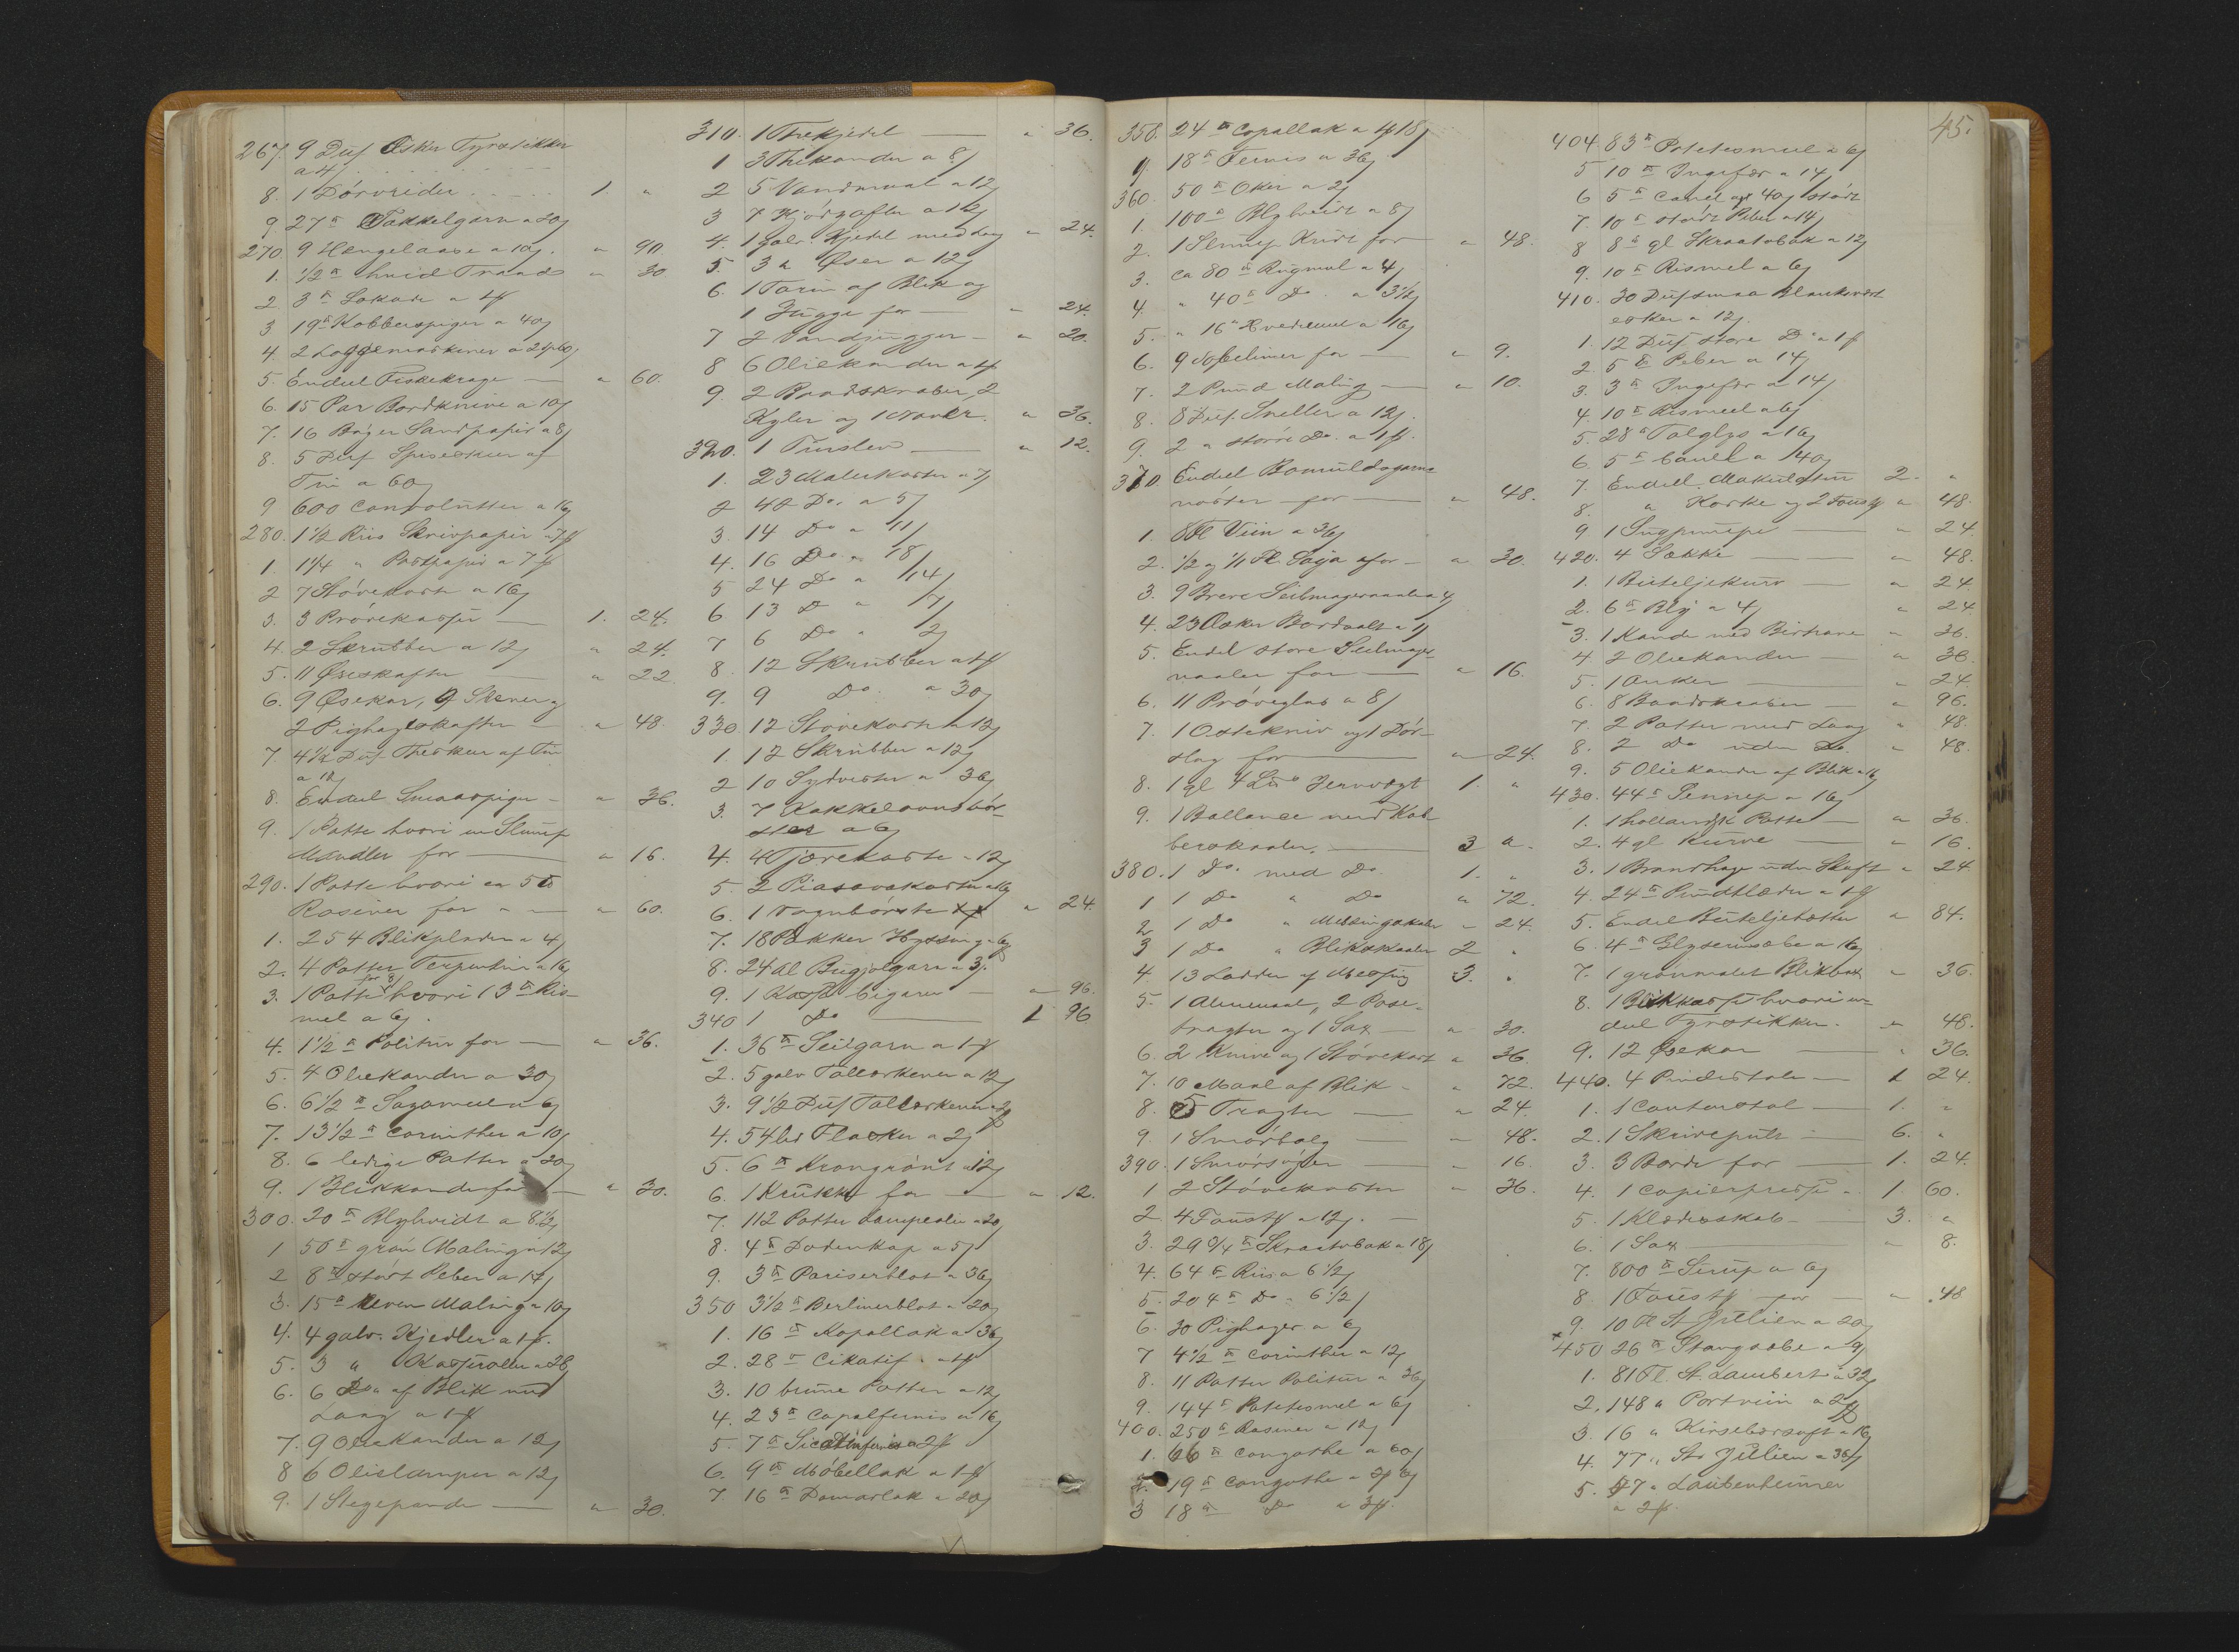 267. 9 Dus Æsker Tyrstikker
a 4 β
8. 1 Dörvrider 1. "
9. 27 ℔ Takkelgarn a 20 β
270. 9 Hængelaase a 10 β. " 90.
1. 1/2 ℔ hvid Traad " 30
2 3 ℔ Lokade a 1 ₰
3 19 ℔ Kobberspiger a 40 β
4. 2 Loggemaskiner a
5. Endeel Fiskekroge — " 60.
6. 15 Par Bordknive a 10 β
7. 16 Böger Sandpapir a 8 β
8. 5 Dus Spiseskeer af
Tin a 60 β
9 600 Convolutter a 16 β
280. 1 1/2 Riis Skrivpapir
1. 1 1/4 " Postpapir a
2 7 Stövekoste a 16 β
3. 3 Prövekasser — 1. 24.
4. 2 Skrubber a 12 β " 24.
5. 11 Øseskafter " 22.
6. 9 Øsekar, 9 Stener og
2 Pighageskafter — " 48.
7. 4 1/2 Dus Theskeer af Tin
a 18 β
8. Endeel Smaaspiger — " 36.
9. 1 Potte hvori en Slump
Mandler for — " 16.
290. 1 Potte hvori ca 5 ℔
Rosiner for " — " 60.
1. 254 Blikplader a 4 β
2. 4 Potter Terpentin a 16 β
3. 1 Potte for 8 β hvori 13 ℔ Ris-
mel a 6 β.
4. 1 1/2 ℔ Politur for — " 36.
5. 4 Oliekander a 30 β
6. 6 1/2 ℔ Sagomeel a 6 β
7. 13 1/2 ℔ Corinther a 10 β
8. 6 ledige Potter a 20 β
9. 1 Blikkande for — " 30.
300. 20 ℔ Blyhvidt a 8 1/2 β
1 50 ℔ grön Maling a 12 β
2 8 ℔ stödt Peber a 14 β
3. 15 ℔ reven Maling a 10 β
4. 4 galv. Kjedler a
5. 3 " Kasseroller a 28 β
6. 6 Do af Blik med
Laag a
7. 9 Oliekander a 12 β
8 6 Olielamper a 12 β
9. 1 Stegepande — " 30.
310. 1 Thekjedel — " 36.
1 3 Thekander a 8 β
2 5 Vandmaal a 12 β
3 7 Kjörgafler a 12 β
4. 1 galv. Kjedel med Laag " 24.
5. 3 " Øser a 12 β
6. 1 Tarin af Blik og
1 Jugge for — " 24.
7 2 Vandjugger — " 20.
8 6 Oliekander a
9. 2 Baadskraber, 2
Kyler og 1 Naver. " 36.
320. 1 Turslev — " 12.
1. 23 Malerkoster a 7 β
2 42 Do. a 5 β
3. 14 Do a 11 β
4. 16 Do a 18 β
5 24 Do a 14 β
6. 13 D " 17 β
7 6 Do " 2 β
8. 12 Skrubber a
9. 9 Do. a 30 β
330. 12 Stövekoste a 12 β
1. 12 Skrubber a 12 β
2 10 Sydvester a 36 β
3. 7 Kakkelovnsbör-
ster a 6 β
4. 4 Tjærekoste " 12 β
5. 2 Piasavakoster a 16 β
6. 1 Vognbörste " 24.
7. 18 Pakker Hyssing a 6 β
8. 24 Al Bugjolgarn a 3 β.
9. 1 Kasse Cigarer — " 96.
340 1 Do — 1 96
1. 36 ℔ Seilgarn a
2. 5 galv Tallerkener a 12 β
3. 9 1/2 Dus Tallerkener a
4. 54 led Flasker a 2 β
5. 6 ℔ Krongrönt a 12 β
6. 1 Krukke for — " 12.
7. 112 Potter Lampeolie a 20 β
8. 4 ℔ Dodenkop a 5 β
9. 3 ℔ Pariserblot a 36 β
350 3 1/2 ℔ Berlinerblot a 20 β
1. 16 ℔ Kopallak a 36 β
2. 28 ℔ Cikatif. a
3. 10 brune Potter a 12 β
4. 23 ℔ Copalfernis a 16 β
5. 7 ℔ Sicativfernis a
6. 9 ℔ Möbellak a
7. 16 ℔ Damarlak a 20 β
45.
358. 24 ℔ Copallak a
9. 18 ℔ Fernis a 36 β
360. 50 ℔ Oker a 2 β
1. 100 ℔ Blyhvidt a 8 β
2. 1 Slump Kridt for — " 48.
3. ca 80 ℔ Rugmel a 4 β
4. " 40 ℔ Do. a 3 1/2 β
5. " 16 " Hvedemel a 16 β
6. 9 for — " 9.
7. 2 Pund Maling — " 10.
8. 8 Dus. Sneller a 12 β.
9. 2 " större Do. a
370. Endeel Bomuldsgarns
nöster for — " 48.
1. 8 Fl Viin a 36 β
2. 1/2 og 1/1 Fl. Soja for — " 30.
3. 9 Breve Seilmagernaale a 4 β
4. 23 Æsker Bordsalt a
5. Endel store Seilmager-
naaler for — " 16.
6. 11 Pröveglas a 8 β
7. 1 Ostekniv og 1 Dör-
slag for — " 24.
8. 1 gl 4 Jernvægt 1. "
9. 1 Ballance med Kob-
berskaaler. — 3 ".
380. 1 Do. med Do. 1. "
1 1 Do " Do " 72.
2 1 Do " Messingskaaler " 24.
3 1 Do " Blikskaaler 2 "
4. 13 Lodder af Messing 3. "
5. 1 Alenmaal, 2 Pose-
tragter og 1 Sax — " 30.
6. 2 Knive og 1 Stövekost " 36.
7. 10 Maal af Blik — " 72.
8. 5 Tragter — " 24.
9. 1 Smörbalg — " 48.
390. 1 — " 16.
1 2 Stövekoster " 36.
2. 4 a 12 β. —
3. 29 3/4 ℔ Skraatobak a 18 β
4. 64 ℔ Riis a 6 1/2 β
5. 204 ℔ Do " 6 1/2 β
6. 30 Pighager a 6 β
7 4 1/2 ℔ Corinther a 12 β
8. 11 Potter Politur a 36 β
9. 144 ℔ Potetesmel a 6 β
400. 250 ℔ Rosiner a 12 β
1. 66 ℔ Congothe a 60 β
2. 19 ℔ Congothe a
3 18 ℔ Do a
404. 83 ℔ Potetesmeel a 6 β
5 10 ℔ Ingefær a 14 β
6 5 ℔ Canel a 40 β stödt
7. 10 ℔ stödt Peber a 14 β
8 8 ℔ gl Skraatobak a 12 β
9. 10 ℔ Rismel a 6 β
410. 30 Dus smaa Blanksvært
esker a 12 β.
1. 12 Dus. store Do a
2. 5 ℔ Peber a 14 β
3. 3 ℔ Ingefær a 14 β
4. 10 ℔ Rismeel a 6 β
5. 28 ℔ Talglys a 16 β
6. 5 ℔ Canell a 40 β
7. Endeel Makulatur 2. "
8. " Korke og 2 " 48.
9 1 Sugpumpe — " 24.
420. 4 Sække — " 48.
1. 1 Buteljekurv — " 24.
2. 6 ℔ Bly a 4 β " 24.
3. 1 Kande med Birhane " 36.
4 2 Oliekander — " 36.
5. 1 Anker — " 24.
6. 8 Baadskraber — " 96.
7. 2 Potter med Laag " 48.
8. 2 Do uden Do. " 48.
9. 5 Oliekander af Blik a 16 β
430. 44 ℔ Sennep a 16 β
1. 1 hollandsk Potte — " 36.
2. 4 gl Kurve — " 16.
3. 1 Brandhage uden Skaft " 24.
4. 24 ℔ Pundtlæder a
5. Endel Buteljehætter " 84.
6. 4 ℔ Glyserinsæbe a 16 β
7. 1 grönmalet Blikbox " 36.
8. 1 Blikkasse hvori en-
deel Fyrstikker. " 48.
9. 12 Øsekar — " 36.
440. 4 Pindestole — 1 24.
1. 1 Contorstol — 1. "
2. 1 Skrivepult — 6. "
3. 3 Borde for — 1. 24.
4. 1 Copierpresse " 1 60.
5. 1 Klædeskab — 3. "
6. 1 Sax — " 8.
7. 800 ℔ Sirup a 6 β
8 1 for — " 48
9. 10 Fl St Jullien a 20 β
450 26 ℔ Stangsæbe a 9 β
1. 81 Fl. St. Lambert a 32 β
2. 148 " Portviin a
3. 16 " Kirsebærsaft a 16 β
4. 77 " St Jullien a 36 β
5. 97 " Laubenheimer
a